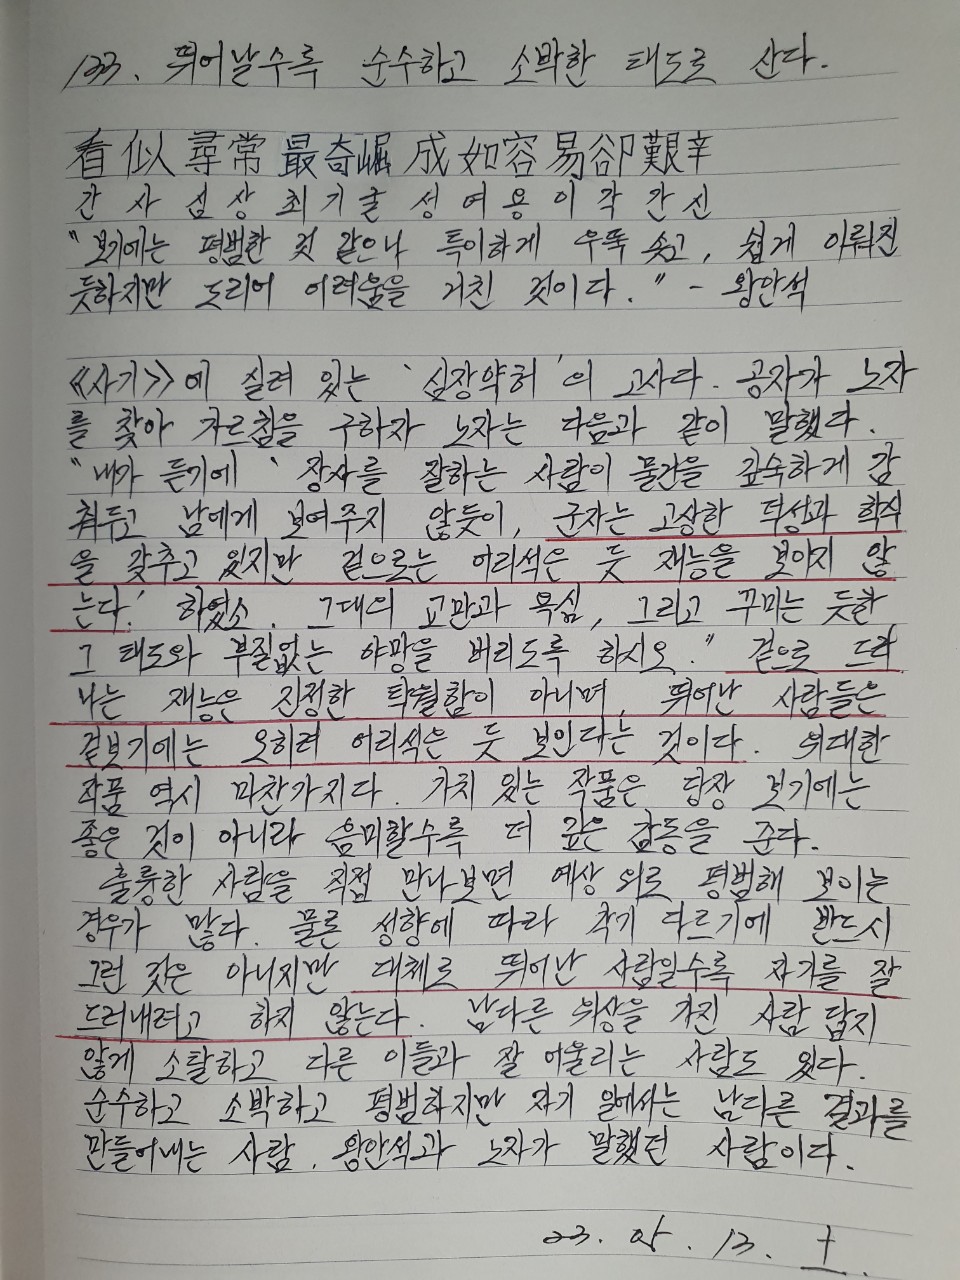 133. 뛰어날수록 순수하고 소박한 태도로 산다.
看似尋常最奇崛 成如容易卻艱辛
간사심상최기굴 성여용이각간신
"보기에는 평범한 것 같으나 특이하게 우뚝 솟고, 쉽게 이뤄진
듯하지만 도리어 어려움을 거친 것이다." - 왕안석
《사기》에 실려 있는 '심장약허'의 고사다. 공자가 노자
를 찾아 가르침을 구하자 노자는 다음과 같이 말했다.
"내가 듣기에 '장사를 잘하는 사람이 물건을 깊숙하게 감
춰두고 남에게 보여주지 않듯이, 군자는 고상한 덕성과 학식
을 갖추고 있지만 겉으로는 어리석은 듯 재능을 보이지 않
는다.' 하였소. 그대의 교만과 욕심, 그리고 꾸미는 듯한
그 태도와 부질없는 야망을 버리도록 하시오." 겉으로 드러
나는 재능은 진정한 탁월함이 아니며, 뛰어난 사람들은
겉보기에는 오히려 어리석은 듯 보인다는 것이다. 위대한
작품 역시 마찬가지다. 가치 있는 작품은 당장 보기에는
좋은 것이 아니라 음미할수록 더 깊은 감동을 준다.
훌륭한 사람을 직접 만나보면 예상 외로 평범해 보이는
경우가 많다. 물론 성향에 따라 각기 다르기에 반드시
그런 것은 아니지만 대체로 뛰어난 사람일수록 자기를 잘
드러내려고 하지 않는다. 남다른 위상을 가진 사람 답지
않게 소탈하고 다른 이들과 잘 어울리는 사람도 있다.
순수하고 소박하고 평범하지만 자기 일에서는 남다른 결과를
만들어내는 사람. 왕안석과 노자가 말했던 사람이다.
23. . 13. 土.